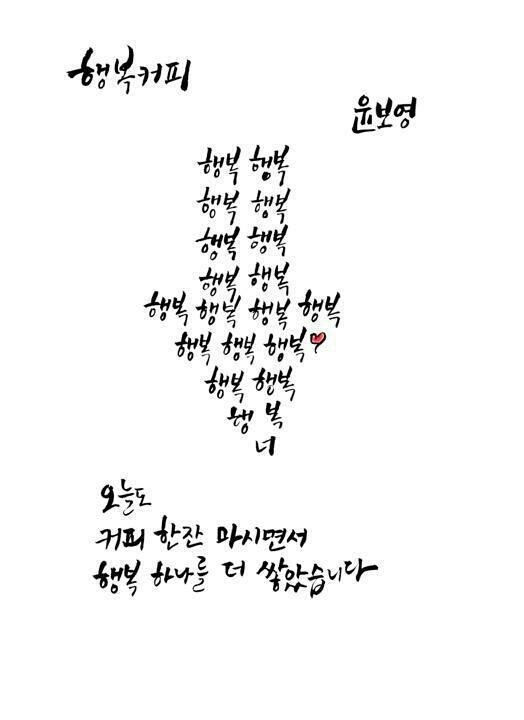 행복커피
윤보영
행복 행복
행복 행복
행복 행복
행복 행복
행복 행복 행복 행복
행복 행복 행복
행복 행복
행 복
너
오늘도
커피 한잔 마시면서
행복 하나를 더 쌓았습니다